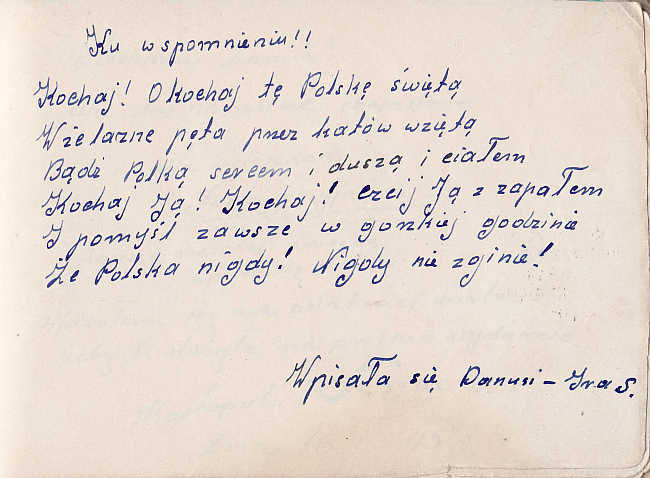 Ku wspomnieniu!!
Kochaj! O kochaj tę Polskę świętą
W żelazne pęta przez katów wziętą
Bądź Polką sercem i duszą i ciałem
Kochaj Ją! Kochaj! czcij Ją z zapałem
I pomyśl zawsze w gorzkiej godzinie
Że Polska nigdy! Nigdy nie zginie!
Wpisała się Danusi – Ira S.